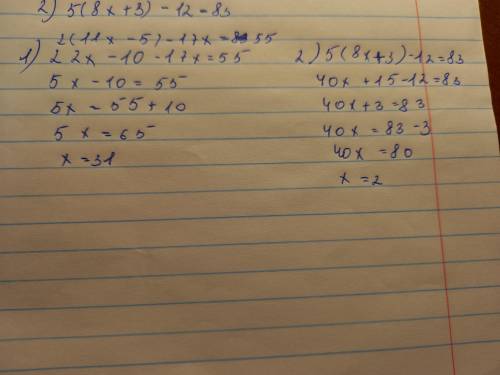 2) 5(8x+3) - 12 = 83
2(11x - 5) - 17x = 55
1) 22x - 10 - 17x = 55
5x - 10 = 55
5x = 55 + 10
5x = 65
x = 31
2) 5(8x+3) - 12 = 83
40x + 15 - 12 = 83
40x + 3 = 83
40x = 83 - 3
40x = 80
x = 2